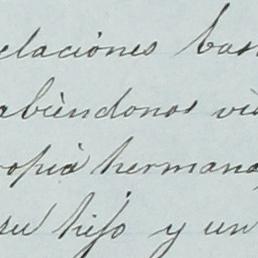 elaciónes bas
abiéndonos vi
ropia hermana
su hijo y un